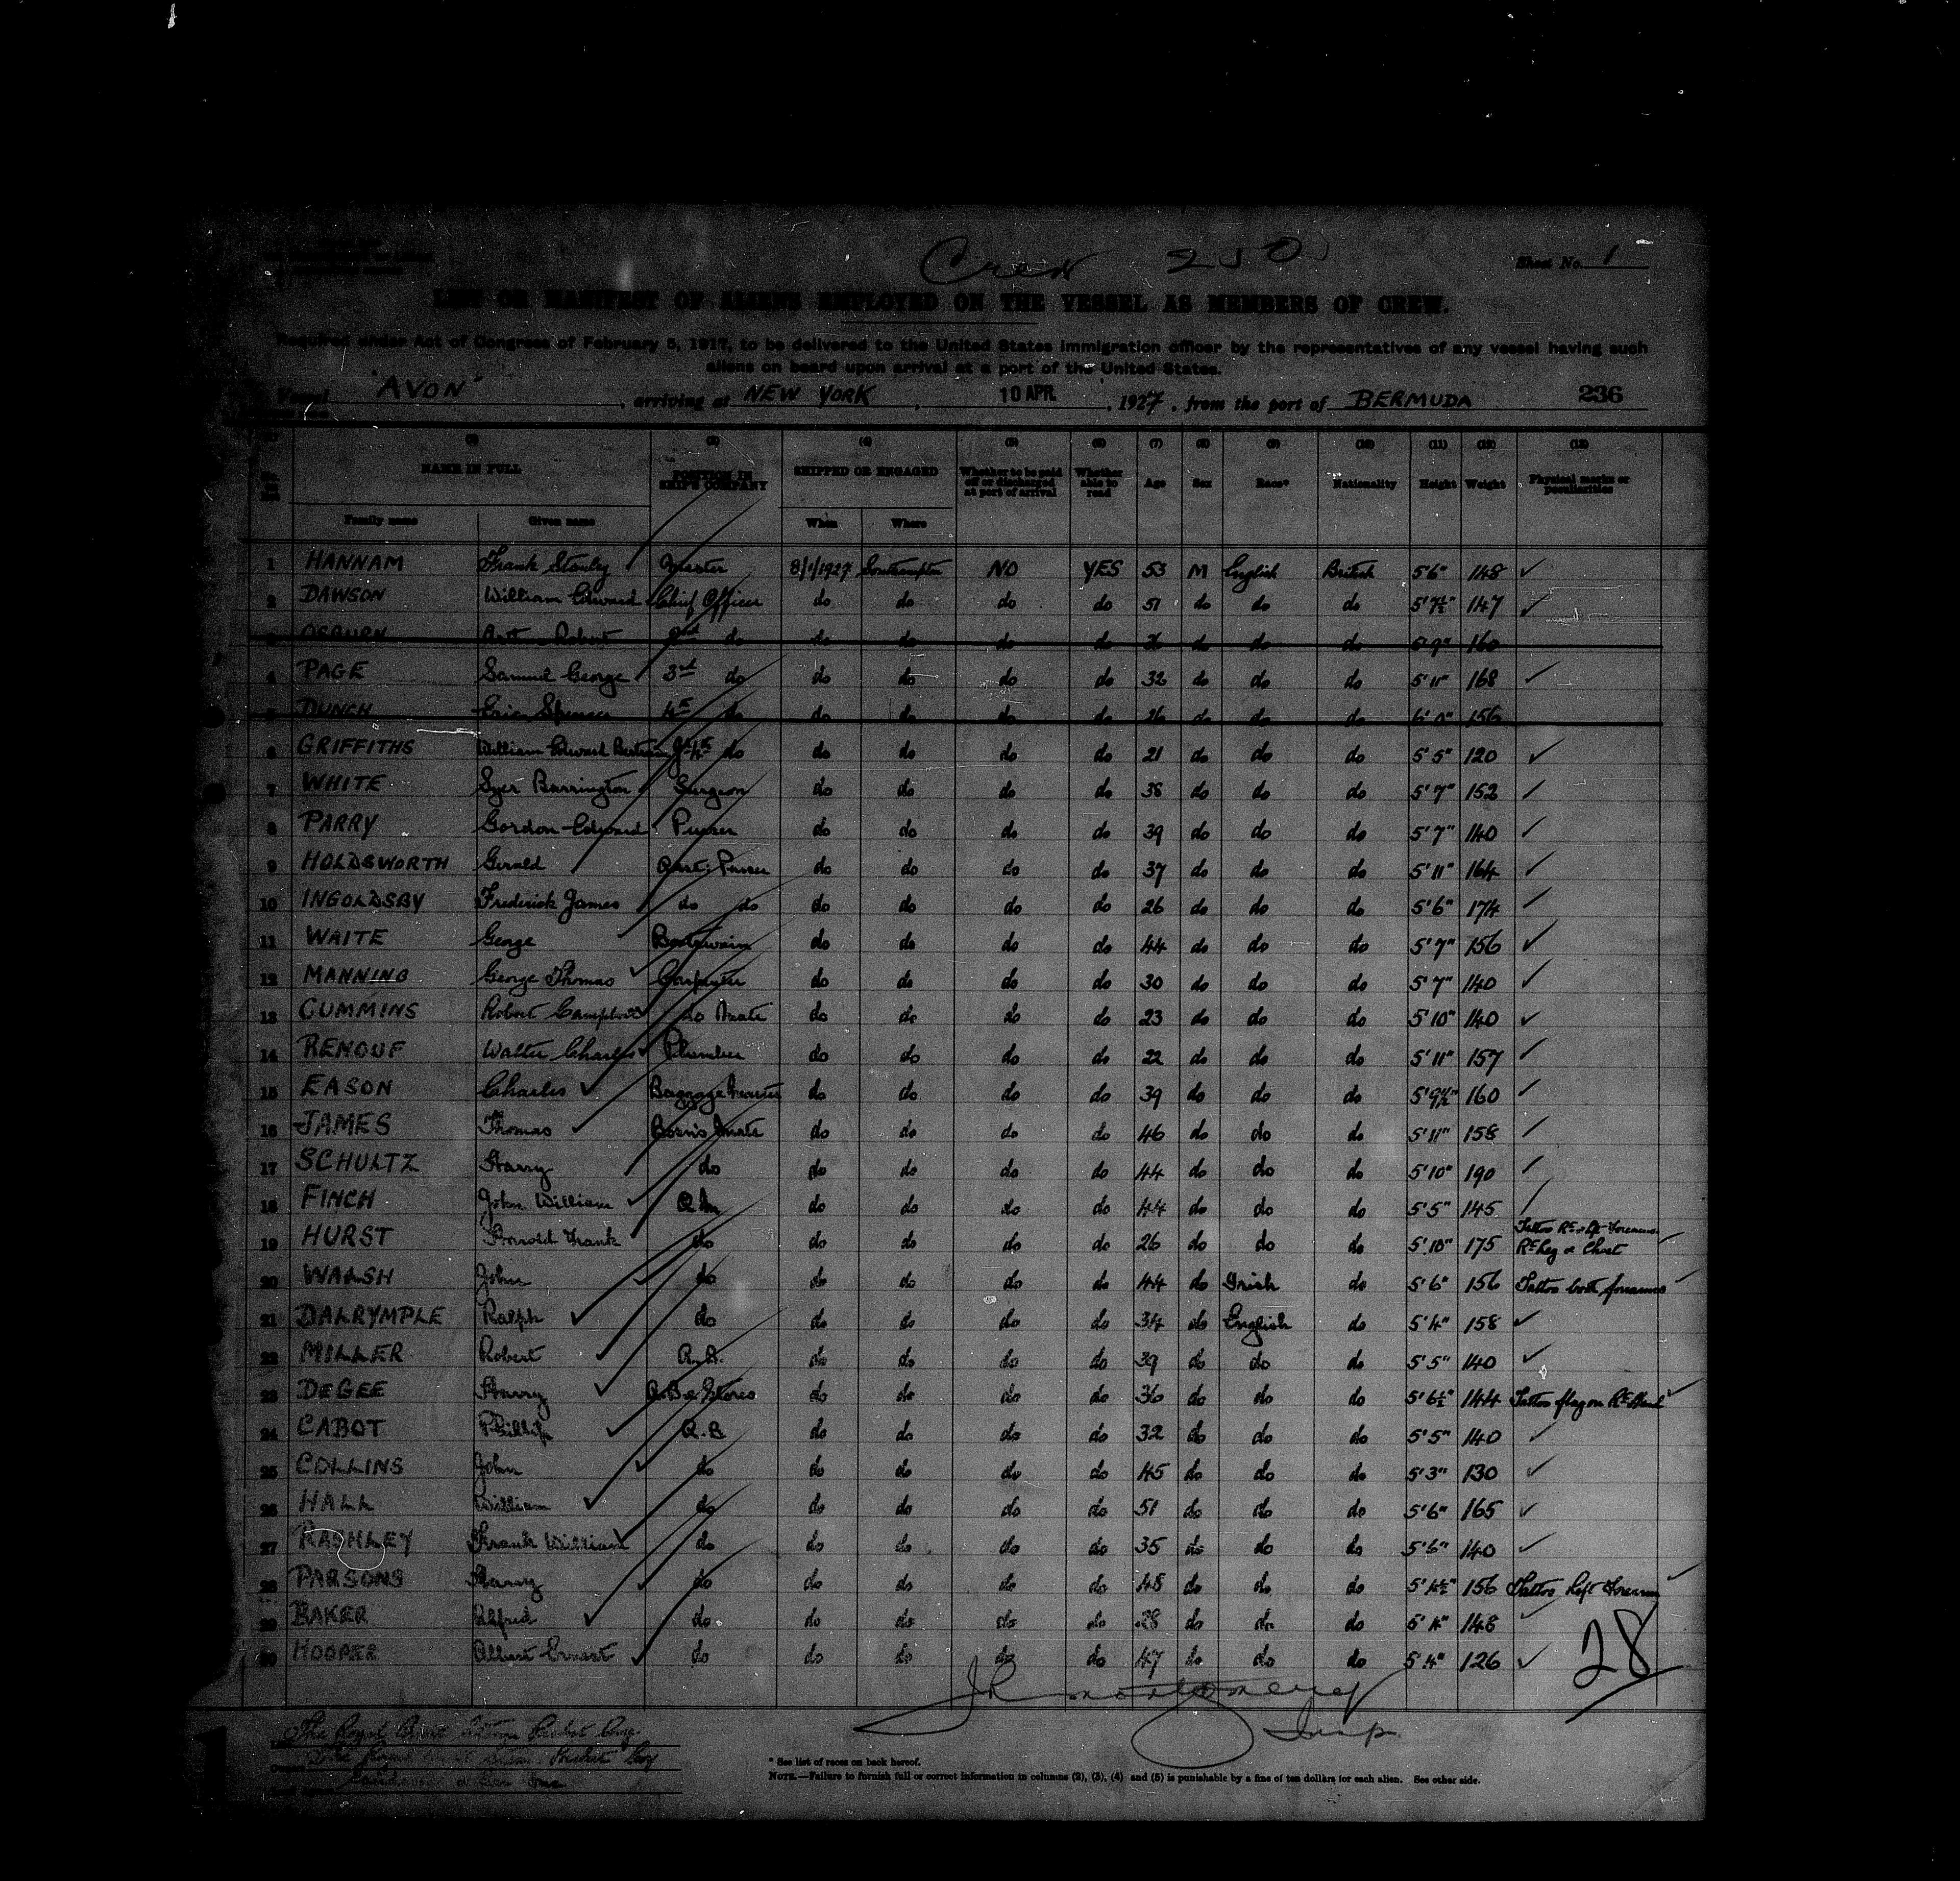 Crew 250
Sheet No. 1
LIST OR MANIFEST OF ALIENS EMPLOYED ON THE VESSEL AS MEMBERS OF CREW.
Required under Act of Congress of February 5, 1917, to be delivered to the United States Immigration officer by the representatives of any vessel having such
aliens on board upon arrival at a port of the United States.
Vessel "AVON", arriving at NEW YORK, 10 APR. 1927, from the port of BERMUDA 236
(3) (4) (5) (6) (7) (8) (9) (10) (11) (12) (13)
NAME IN FULL POSITION IN SHIP'S COMPANY SHIPPED OR ENGAGED Whether to be paid off or discharged at port of arrival Whether able to read Age Sex Race* Nationality Height Weight Physical marks or peculiarities
Family name Given name When Where
1 HANNAM Frank Stanley Master 8/1/1927 Southampton NO YES 53 M English British 5'6" 148 ✓
2 DAWSON William Edward Chief Officer do do do do 51 do do do 5'7½" 147 ✓
3 OSBURN Robert 2nd do do do do do do do do 5'9" 160
4 PAGE Samuel George 3rd do do do do do 32 do do do 5'11" 168 ✓
5 DUNCH Eric Spencer 4th do do do do do 26 do do do 6'0" 156
6 GRIFFITHS William Edward Bertram do do do do do 21 do do do 5'5" 120 ✓
7 WHITE Syer Barrington Surgeon do do do do 38 do do do 5'7" 152 ✓
8 PARRY Gordon Edward Purser do do do do 39 do do do 5'7" 140 ✓
9 HOLDSWORTH Gerald Asst. Purser do do do do 37 do do do 5'11" 164 ✓
10 INGOLDSBY Frederick James do do do do do do 26 do do do 5'6" 174 ✓
11 WAITE George Boatswain do do do do 44 do do do 5'7" 156 ✓
12 MANNING George Thomas Carpenter do do do do 30 do do do 5'7" 140 ✓
13 CUMMINS Robert Campbell do Mate do do do do 23 do do do 5'10" 140 ✓
14 RENOUF Walter Charles Plumber do do do do 22 do do do 5'11" 157 ✓
15 EASON Charles ✓ Baggage Master do do do do 39 do do do 5'9½" 160 ✓
16 JAMES Thomas ✓ Bosn's Mate do do do do 46 do do do 5'11" 158 ✓
17 SCHULTZ Harry do do do do do 44 do do do 5'10" 190 ✓
18 FINCH John William ✓ Q.M. do do do do 44 do do do 5'5" 145 ✓
19 HURST Frank do do do do do 26 do do do 5'10" 175 Tattoo Rt & Lft Forearms Rt Leg & Chest ✓
20 WALSH John ✓ do do do do do 44 do Irish do 5'6" 156 Tattoo both forearms ✓
21 DALRYMPLE Ralph ✓ do do do do do 34 do English do 5'4" 158 ✓
22 MILLER Robert ✓ A.B. do do do do 39 do do do 5'5" 140 ✓
23 DEGEE Harry ✓ A.B. & Stores do do do do 36 do do do 5'6½" 144 Tattoo flag on Rt Hand ✓
24 CABOT Phillip ✓ A.B do do do do 32 do do do 5'5" 140 ✓
25 COLLINS John ✓ do do do do do 45 do do do 5'3" 130 ✓
26 HALL William ✓ do do do do do 51 do do do 5'6" 165 ✓
27 RASHLEY Frank William ✓ do do do do do 35 do do do 5'6" 140 ✓
28 PARSONS Harry ✓ do do do do do 48 do do do 5'4½" 156 Tattoo Left Forearm ✓
29 BAKER Alfred ✓ do do do do do 28 do do do 5'4" 148 ✓
30 HOOPER Albert Ernest ✓ do do do do do 47 do do do 5'4" 126 ✓
28
J R Montgomery
Insp.
The Royal Mail Steam Packet Coy
* See list of races on back hereof.
NOTE.—Failure to furnish full or correct information in columns (2), (3), (4) and (5) is punishable by a fine of ten dollars for each alien. See other side.